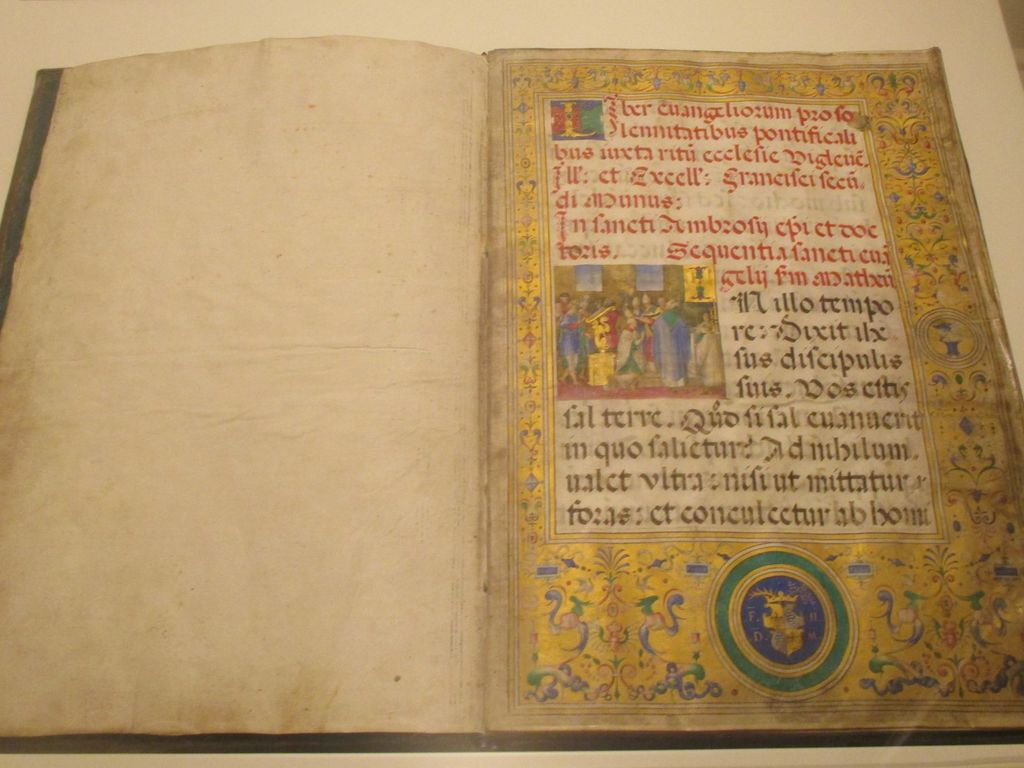 Liber Euangeliorum pro so
lennitatibus pontificali
bus iuxta ritũ ecclesie Viglevẽ.
Ill: et Excell: Francisci secũ.
di Munus:
In sancti Ambrosij epi et doc
toris. Sequentia sancti euã
gelij fm Matheũ
IN illo tempo
re: Dixit ihe
sus discipulis
suis. Vos estis
sal terre. Quod si sal euanuerit
in quo salietur? Ad nihilum
ualet vltra: nisi ut mittatur
foras: et conculcetur ab homi
F. II.
D. M.